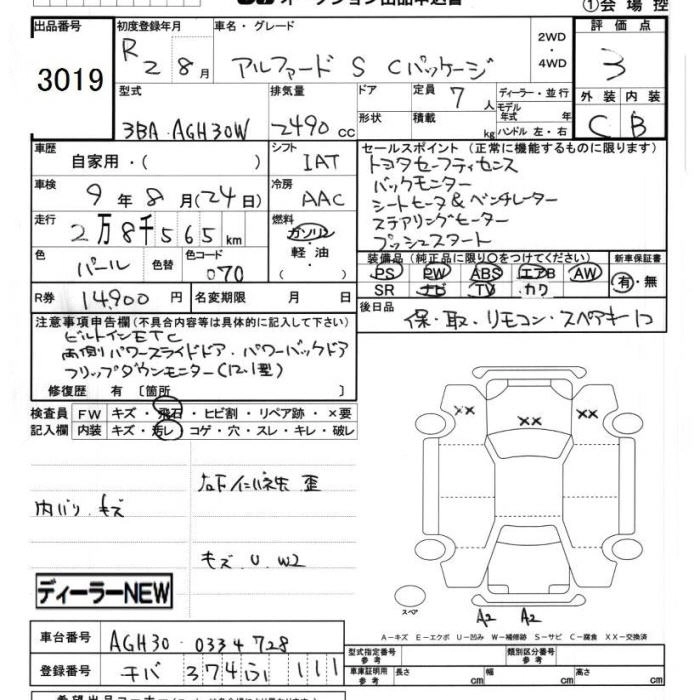 ①会場控
出品番号 3019
初度登録年月 R2 8月
車名・グレード アルファード S Cパッケージ
2WD・4WD
評価点 3
外装 C 内装 B
型式 3BA-AGH30W
排気量 2490 cc
ドア 形状
定員 7人
積載 kg
ディーラー・並行
モデル年式 年
ハンドル 左・右
車歴 自家用・( )
シフト IAT
車検 9年8月(24日)
冷房 AAC
走行 2万8千565km
燃料 ガソリン 軽油 ( )
色 パール 色替 色コード 070
R券 14,900円 名変期限 月 日
セールスポイント (正常に機能するものに限ります)
トヨタセーフティセンス
バックモニター
シートヒータ&ベンチレーター
ステアリングヒーター
プッシュスタート
装備品 (純正品に限り○をつけてください)
PS PW ABS エアB AW
SR ナビ TV カワ
新車保証書 有・無
後日品 保・取・リモコン・スペアキーコ
注意事項申告欄 (不具合内容等は具体的に記入して下さい)
ビルトインETC
両側パワースライドドア・パワーバックドア
フリップダウンモニター(12.1型)
修復歴 有 〔箇所 〕
検査員記入欄
FW キズ・飛石・ヒビ割・リペア跡・×要
内装 キズ・汚レ・コゲ・穴・スレ・キレ・破レ
内バリ、キズ
キズ、U、W2
ディーラーNEW
XX XX XX
スペア
A2 A2
A-キズ E-エクボ U-凹み W-補修跡 S-サビ C-腐食 XX-交換済
車台番号 AGH30-0334728
登録番号 チバ 374ふ 111
型式指定番号 参考
類別区分番号 参考
車庫証明用 参考 長さ cm 幅 cm 高さ cm